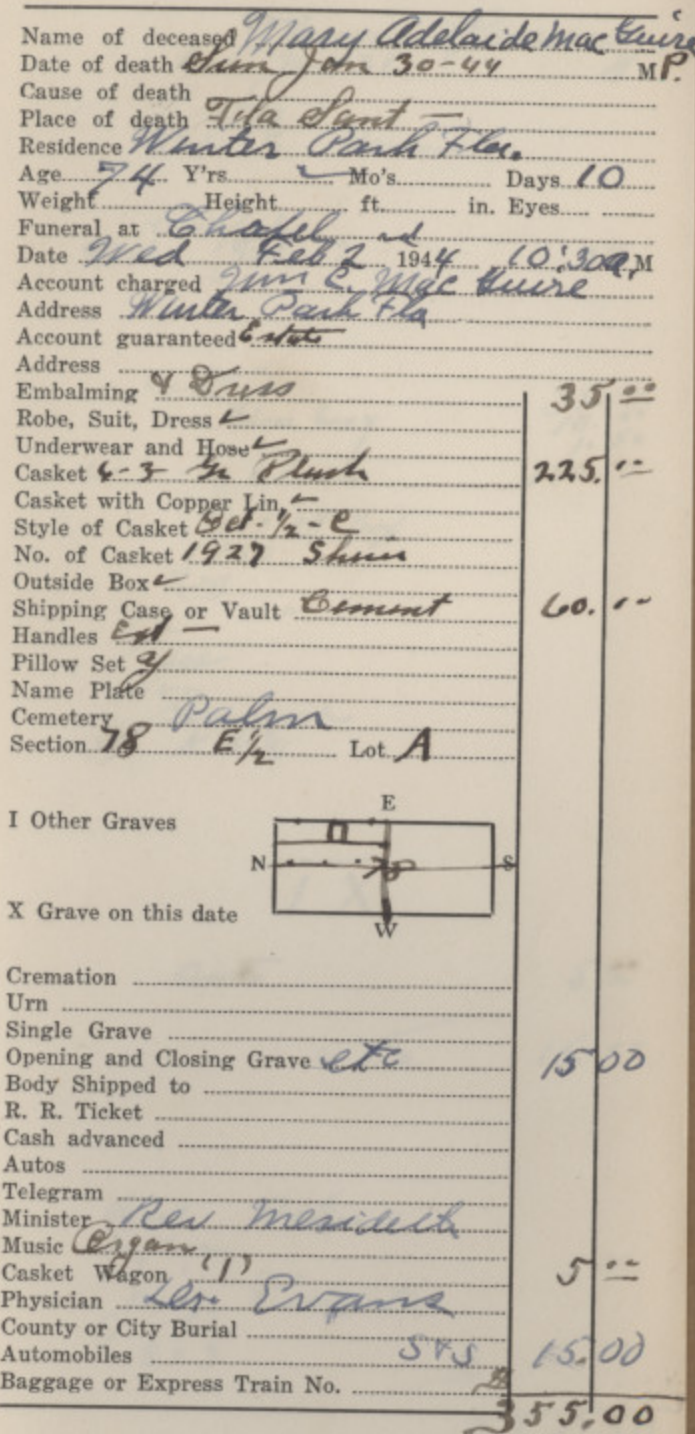 Name of deceased Mary Adelaide Mac Guire
Date of death Sun Jan 30-44 M P.
Cause of death
Place of death Fla Sant —
Residence Winter Park Fla.
Age 74 Y'rs. ✓ Mo's. Days 10
Weight Height ft. in. Eyes
Funeral at Chapel
Date Wed Feb 2 nd 1944 10:30 a. M
Account charged Mac Guire
Address Winter Park Fla
Account guaranteed Estate
Address
Embalming & Dress 35 00
Robe, Suit, Dress ✓
Underwear and Hose ✓
Casket 6-3 Plush 225. 00
Casket with Copper Lin. ✓
Style of Casket Oct-1/2-C
No. of Casket 1927
Outside Box ✓
Shipping Case or Vault Cement 60. 00
Handles Ext —
Pillow Set y
Name Plate
Cemetery Palm
Section 78 E 1/2 Lot A
E
I Other Graves
N 78 S
X Grave on this date
W
Cremation
Urn
Single Grave
Opening and Closing Grave etc 15 00
Body Shipped to
R. R. Ticket
Cash advanced
Autos
Telegram
Minister Rev Merideth
Music Organ
Casket Wagon (1) 5 00
Physician Dr. Evans
County or City Burial
Automobiles S & S 15.00
Baggage or Express Train No.
355.00